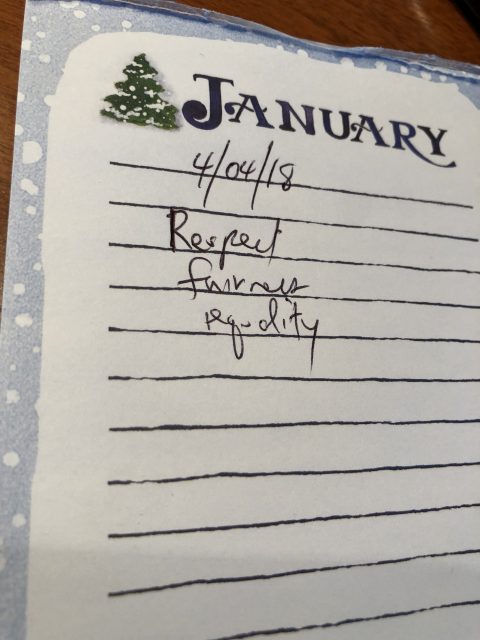 JANUARY
4/04/18
Respect
fairness
equality